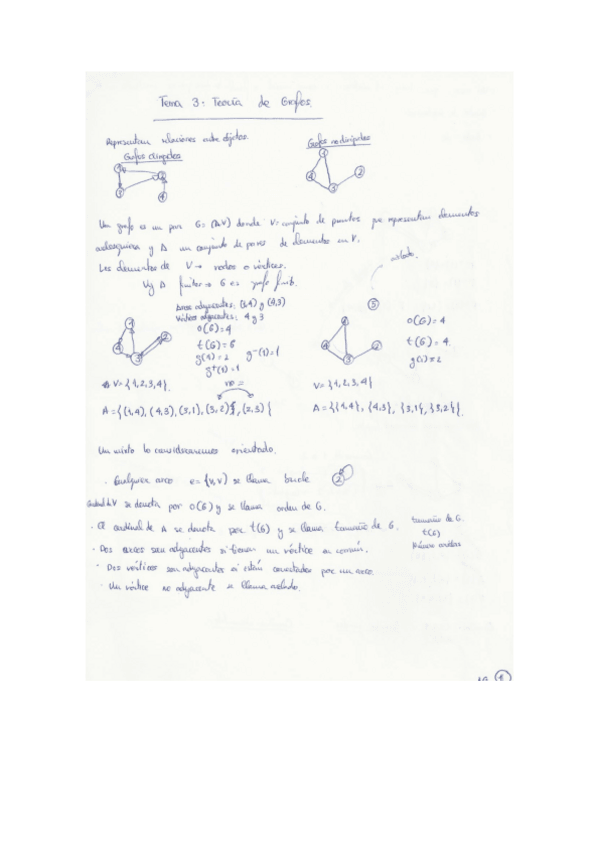 Tema 3: Teoría de Grafos.
Representan relaciones entre objetos.
Grafos dirigidos
Grafos no dirigidos
1 2 3 4
1 4 2 3
Un grafo es un par G = (A,V) donde V = conjunto de puntos que representan elementos
cualesquiera y A un conjunto de pares de elementos en V.
Los elementos de V → nodos o vértices.
V y A finitos → G es grafo finit.
aislado.
5
Arcos adyacentes: (3,4) y (4,3)
Vértices adyacentes: 4 y 3
O(G) = 4
t(G) = 6
g(1) = 2 g⁻(1) = 1
g⁺(1) = 1
1 4 3 2
1 4 3 2
O(G) = 4
t(G) = 4.
g(1) = 2
V = {1,2,3,4}.
no =
V = {1,2,3,4}
A = {(1,4), (4,3), (3,1), (3,2), (2,3)}
A = {{1,4}, {4,3}, {3,1}, {3,2}}.
Un mixto lo consideraremos orientado.
· Cualquier arco e = {v,v} se llama bucle 2
Cardinal de V se denota por O(G) y se llama orden de G.
· El cardinal de A se denota por t(G) y se llama tamaño de G.
tamaño de G.
t(G)
Número aristas
· Dos arcos son adyacentes si tienen un vértice en común.
· Dos vértices son adyacentes si están conectados por un arco.
· Un vértice no adyacente se llama aislado.